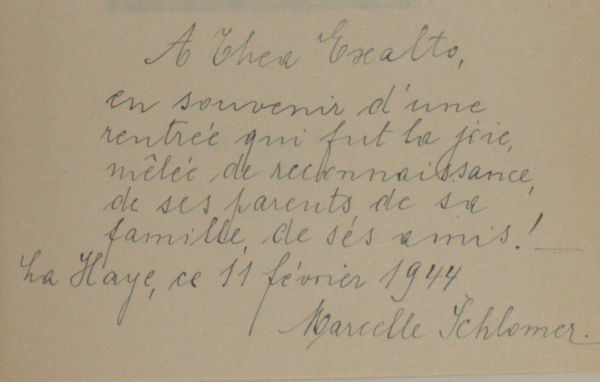 A Thea Exalto,
en souvenir d'une
rentrée qui fut la joie,
mêlée de reconnaissance,
de ses parents de sa
famille, de sés amis! —
La Haye, ce 11 février 1944
Marcelle Schlomer.